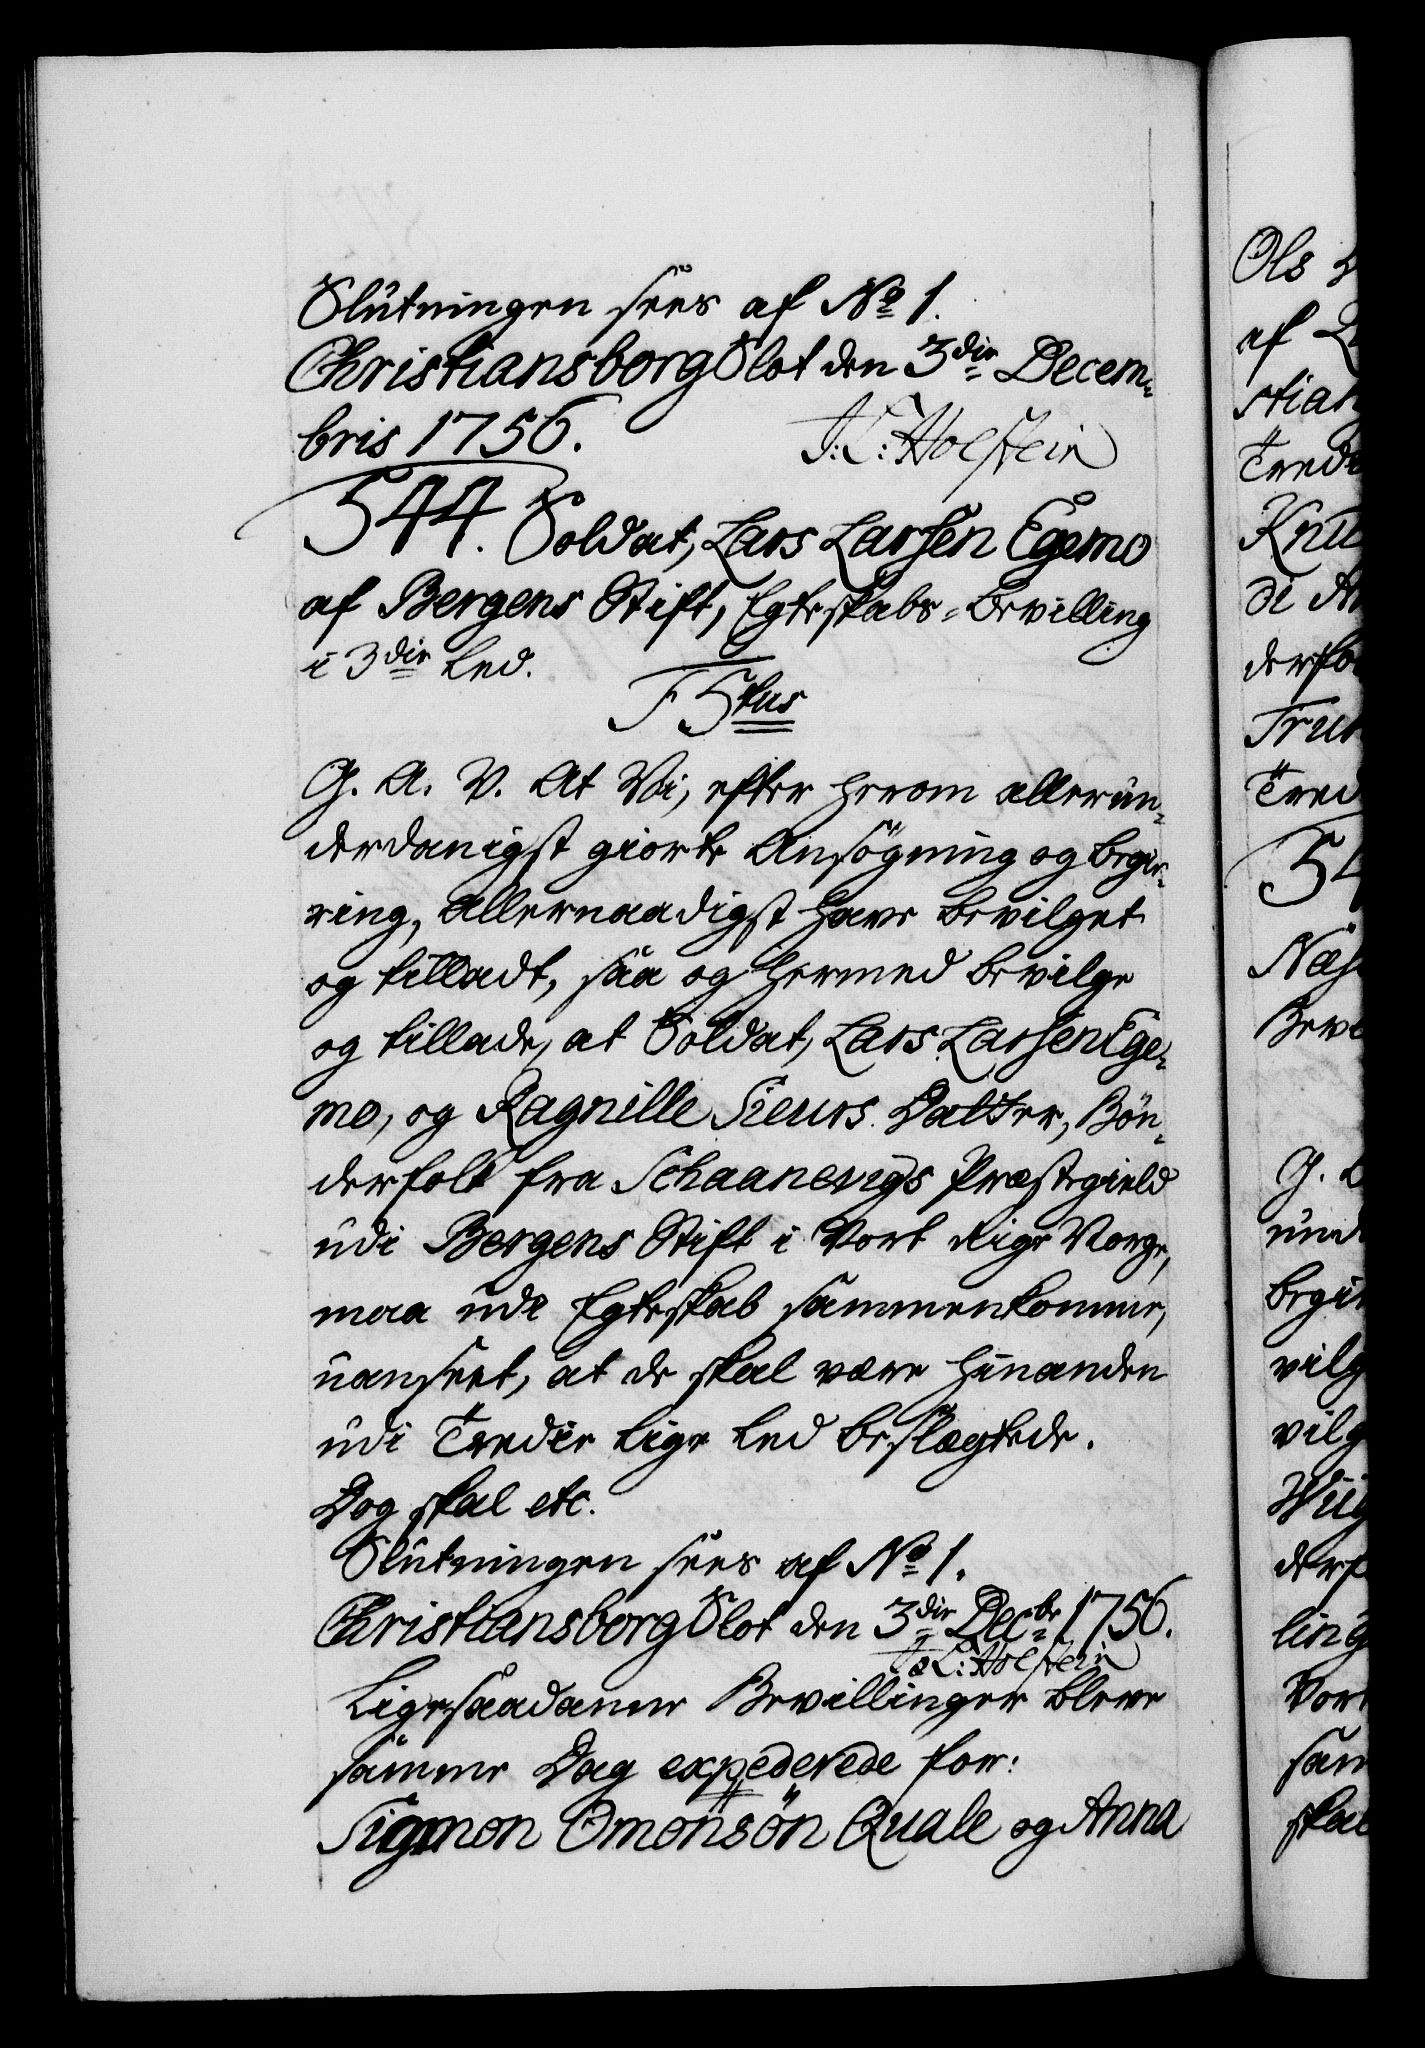 Slutningen sees af No 1.
Christiansborg Slot den 3die Decem-
bris 1756. J: L: Holstein
544. Soldat, Lars Larsen Egemo
af Bergens Stift, Egteskabs-Bevilling
i 3die Led.
F 5tus
G. A. V. At Vi, efter herom allerun-
derdanigst giorte Ansögning og begie-
ring, Allernaadigst have bevilget
og tilladt, saa og hermed bevilge
og tillade, at Soldat, Lars Larsen Ege-
mo, og Ragnille Sieurs Datter, Bön-
derfolk fra Schaanevigs Præstegield
udi Bergens Stift i Vort Rige Norge,
maa udi Egteskab sammenkomme,
uanseet, at de skal være hinanden
udi Tredie lige Led beslægtede.
Dog skal etc.
Slutningen sees af No 1.
Christiansborg Slot den 3die Decbr 1756.
J: L: Holstein
Ligesaadanne Bevillinger bleve
samme Dag expederede for:
Sigmon Omonsön Quale og Anna
Ols
af
stian
Tredi
Knu
di
derfol
Tru
Tred
54
Næs
Bevi
G.
und
begie
vilg
vilg
derf
ling
Vort
sam
skal